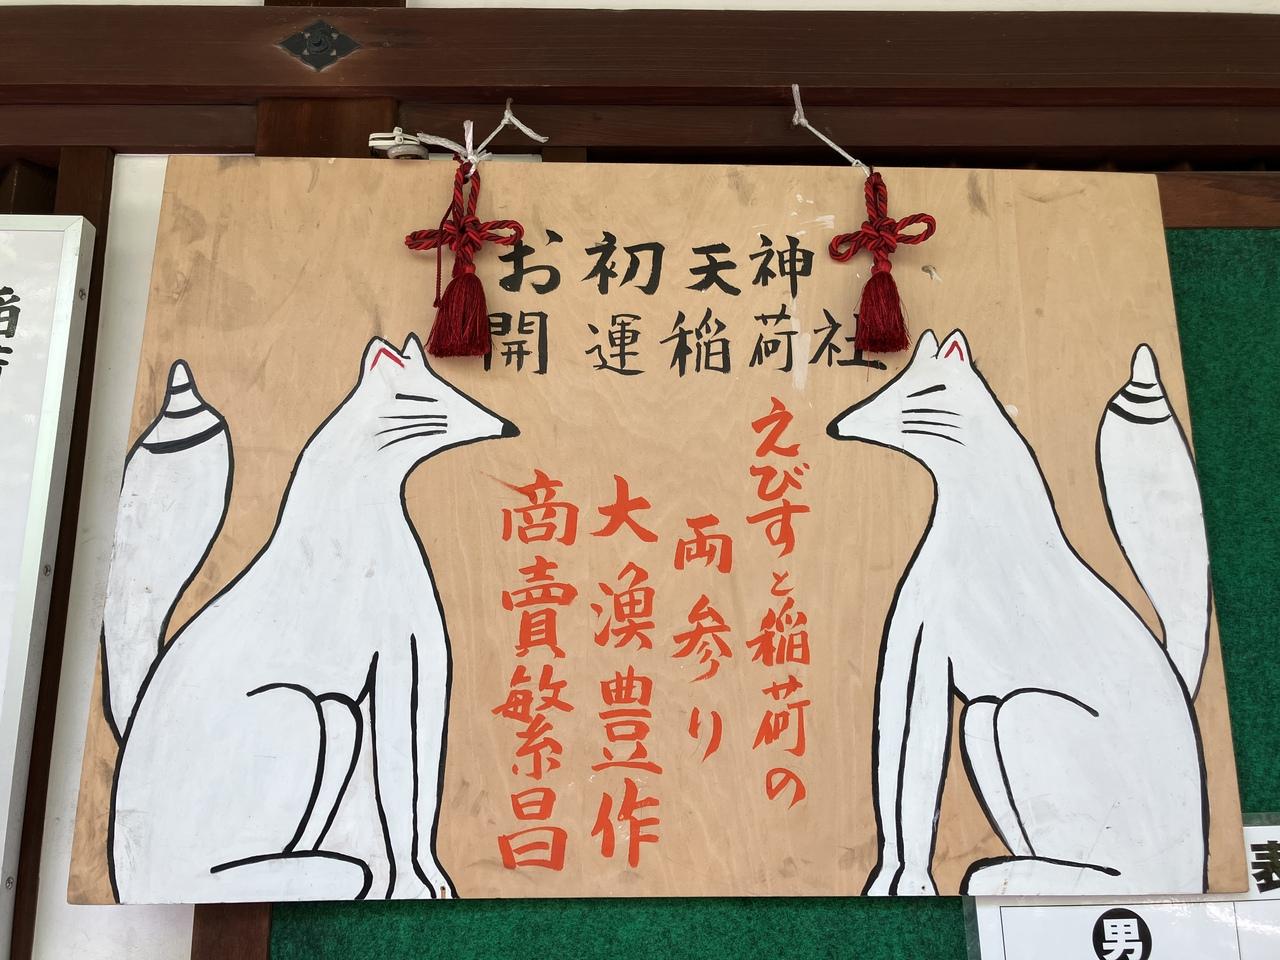 お初天神
開運稲荷社
えびすと稲荷の
両参り
大漁豊作
商賣繁昌
男